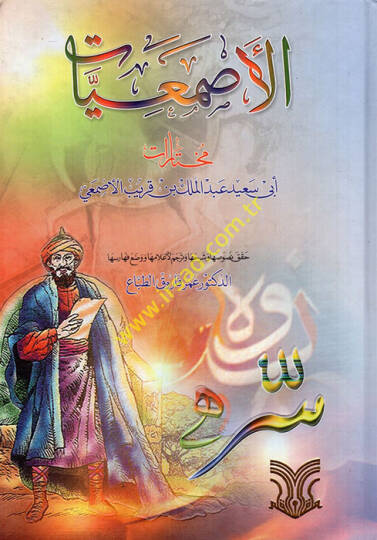 الأصمعيّات
مختارات
أبي سعيد عبد الملك بن قريب الأصمعي
حقق نصوصها وشرحها وترجم لأعلامها ووضع فهارسها
الدكتور عمر فاروق الطباع
www.irsad.com.tr